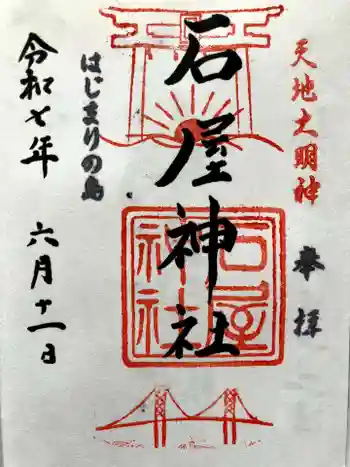 天地大明神
奉拝
石屋神社
石屋神社
はじまりの島
令和七年 六月十一日